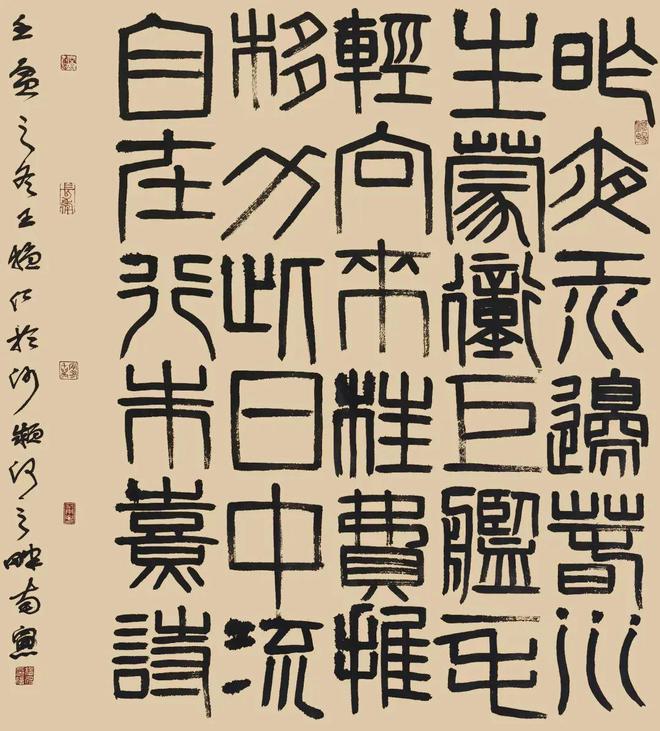 昨夜江邊春水
生蒙衝巨艦一毛
輕向來枉費推
移力此日中流
自在行朱熹詩
壬寅之冬王猛仁於沙潁河之畔南窗